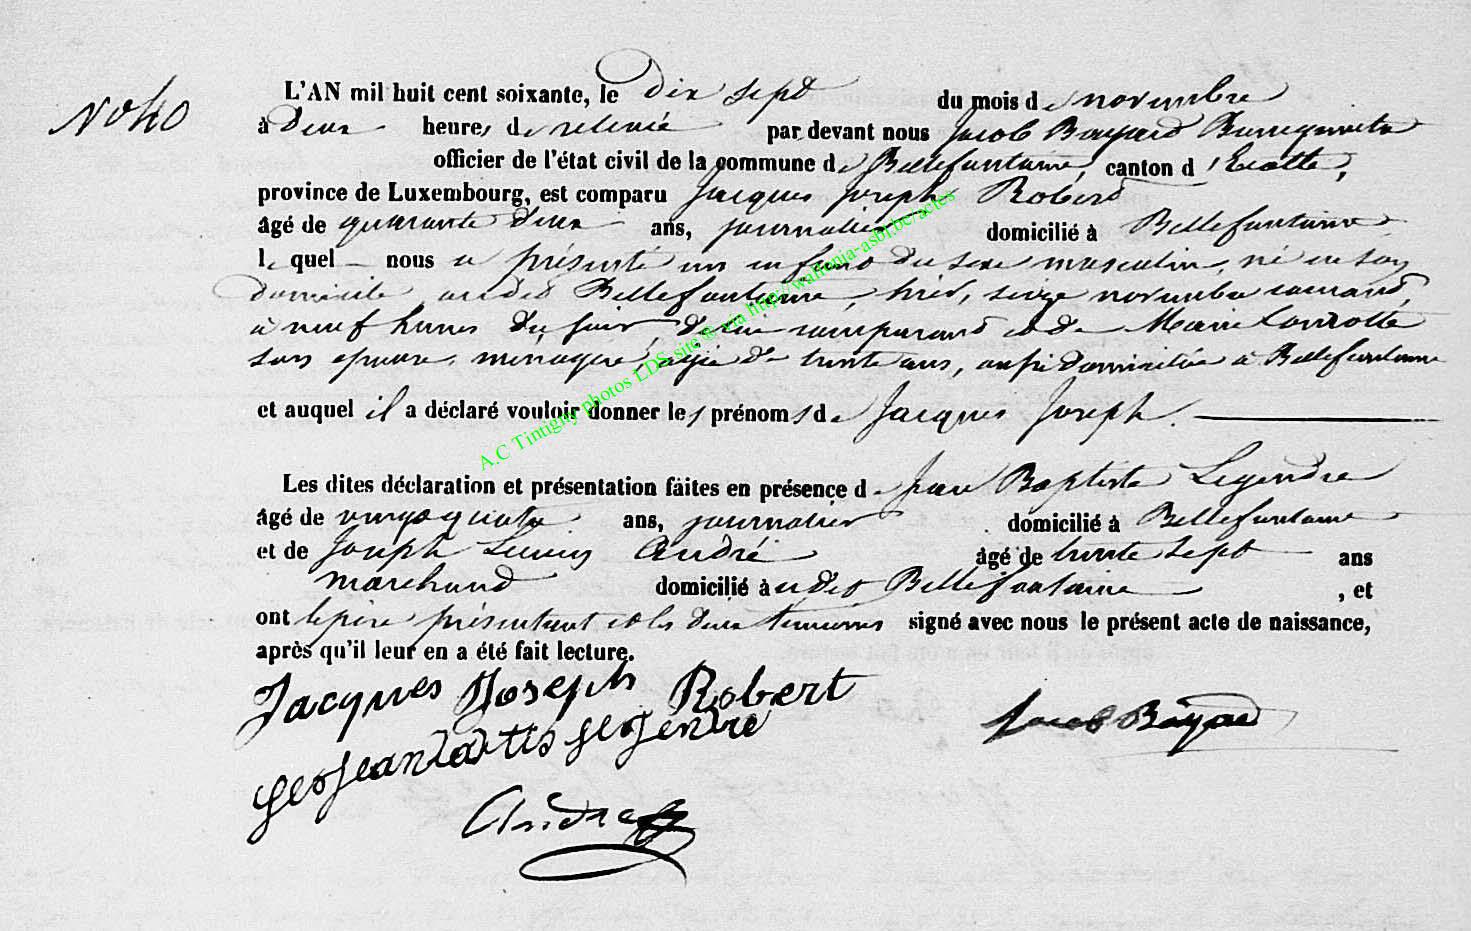 No 40
L'AN mil huit cent soixante, le dix sept du mois de novembre
à deux heures de relevée par devant nous Jacob Bayard Bourgmestre
officier de l'état civil de la commune de Bellefontaine, canton d'Etalle,
province de Luxembourg, est comparu Jacques Joseph Robert
âgé de quarante deux ans, journalier domicilié à Bellefontaine,
lequel nous a présenté un enfant du sexe masculin, né en son
domicile audit Bellefontaine, hier, seize novembre courant,
à neuf heures du soir, de lui comparant et de Marie
son épouse, ménagère, agée de trente ans, aussi domiciliée à Bellefontaine
et auquel il a déclaré vouloir donner les prénoms de Jacques Joseph.
Les dites déclaration et présentation faites en présence de Jean Baptiste Legendre
âgé de vingt quatre ans, journalier domicilié à Bellefontaine
et de Joseph André âgé de trente sept ans
marchand domicilié à udit Bellefontaine, et
ont le père présentant et les deux témoins signé avec nous le présent acte de naissance,
après qu'il leur en a été fait lecture.
Jacques Joseph Robert
Jacob Bayard
André
A.C Tintigny photos LDS, site @ via http://wallonia-asbl.be/actes